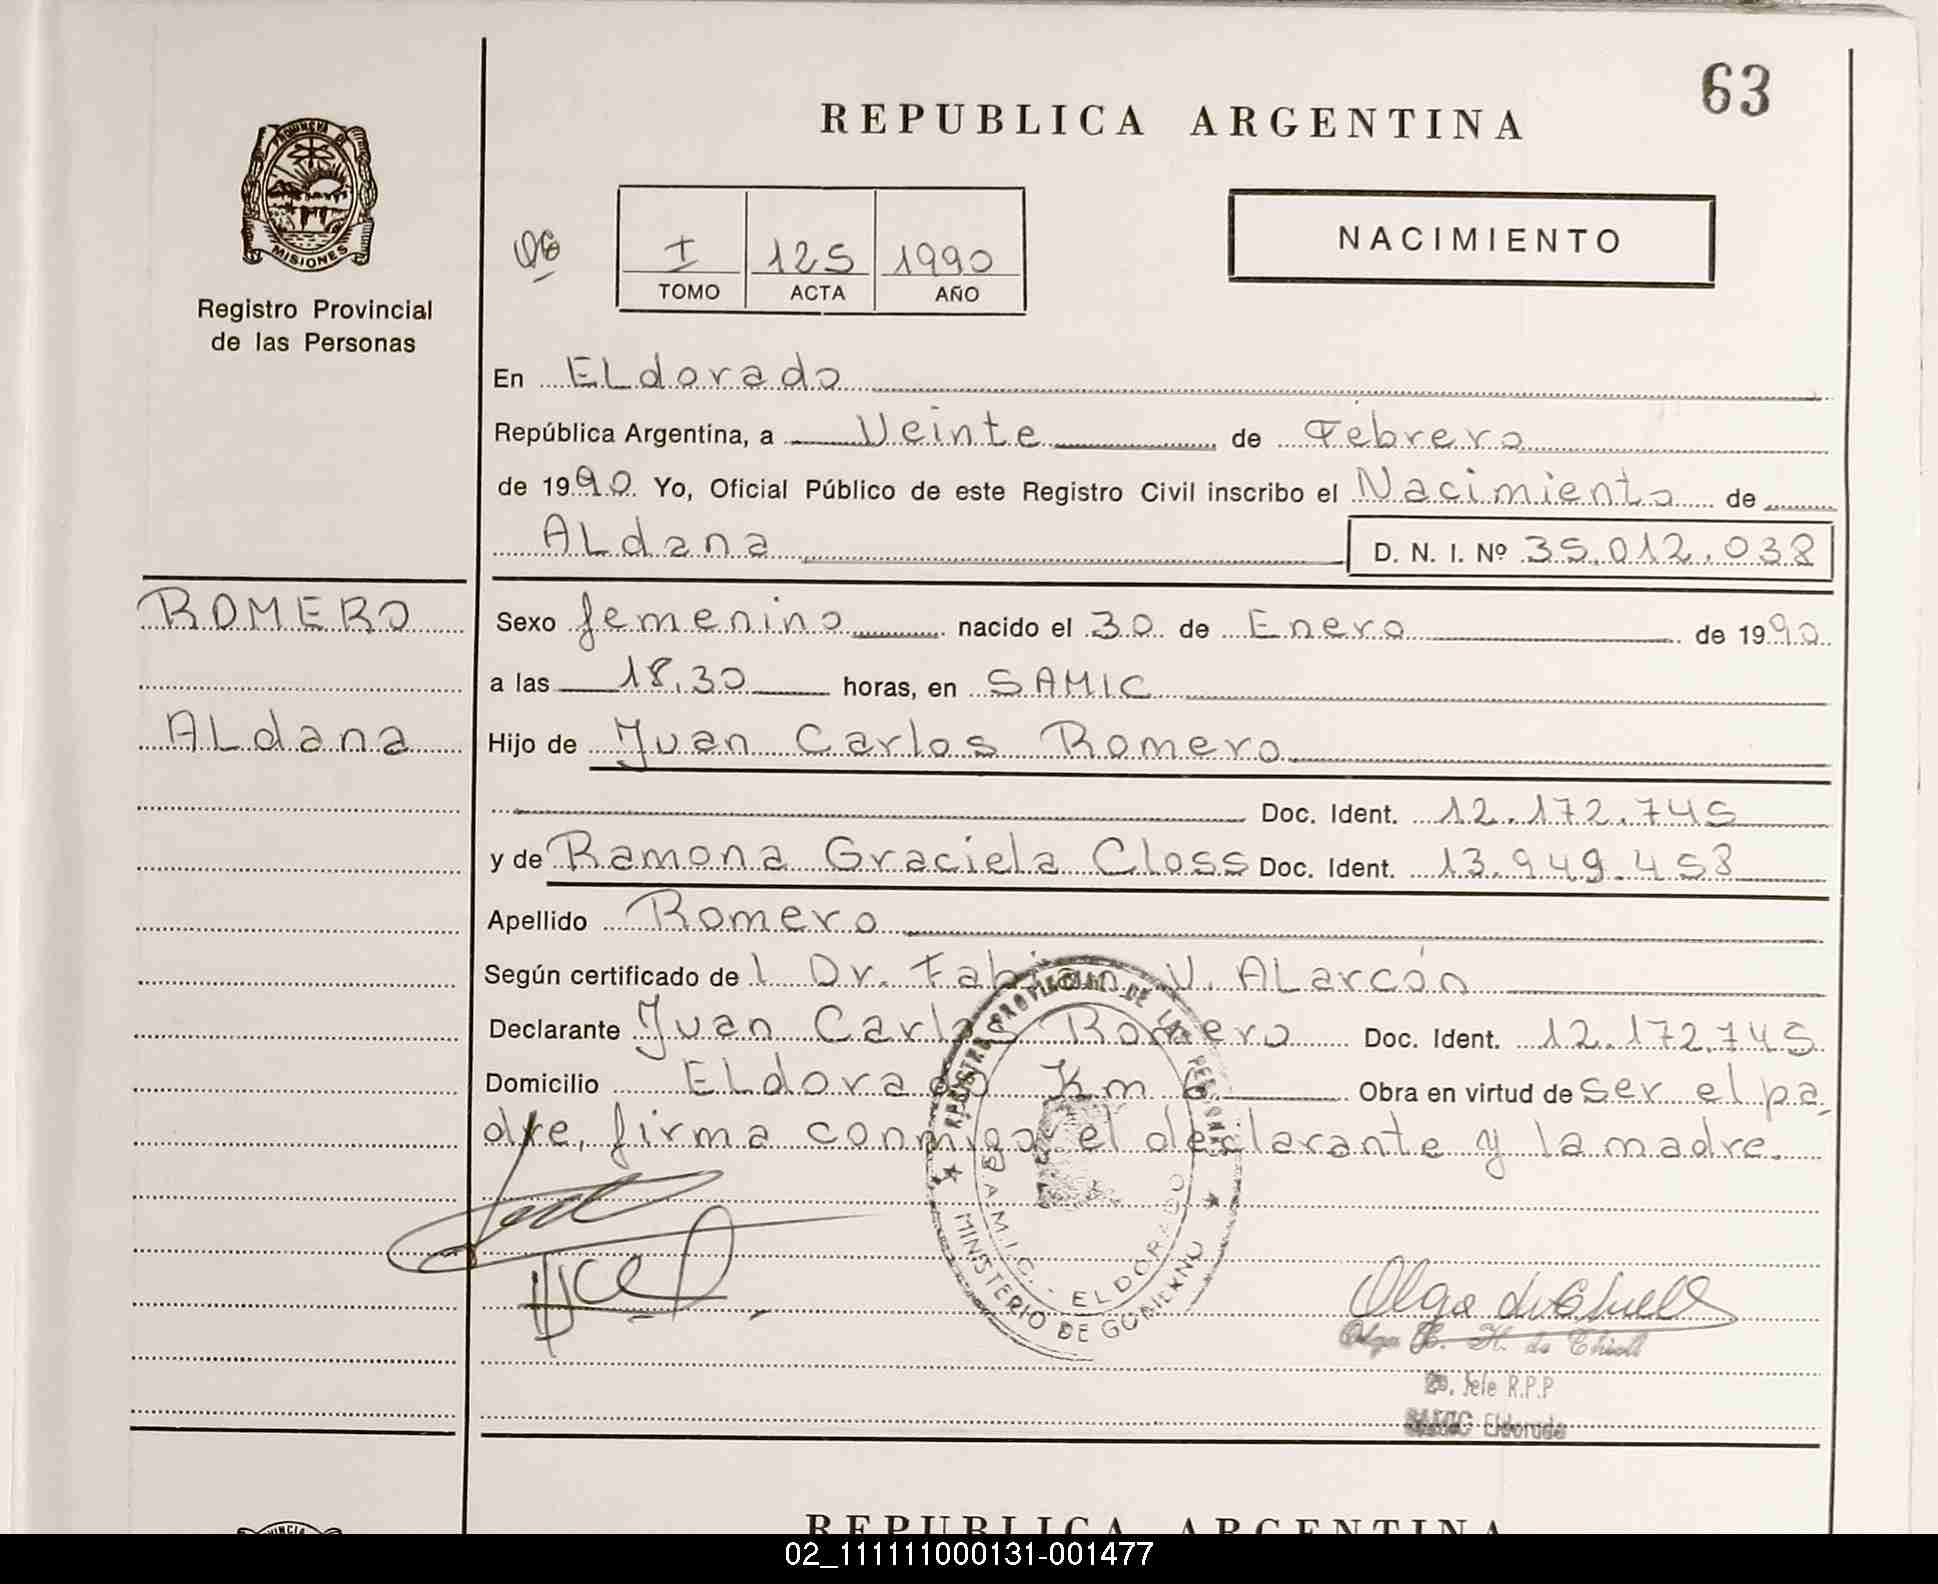 63
REPUBLICA ARGENTINA
PROVINCIA DE
MISIONES
Registro Provincial
de las Personas
I 125 1990
TOMO ACTA AÑO
NACIMIENTO
En ELdorado
República Argentina, a Veinte de Febrero
de 1990. Yo, Oficial Público de este Registro Civil inscribo el Nacimiento de
ALdana D. N. I. Nº 35.012.038
ROMERO
ALdana
Sexo femenino nacido el 30 de Enero de 1990
a las 18.30 horas, en SAMIC
Hijo de Juan Carlos Romero
Doc. Ident. 12.172.745
y de Ramona Graciela Closs Doc. Ident. 13.949.458
Apellido Romero
Según certificado de l Dr. Fabian V. ALarcón
Declarante Juan Carlos Romero Doc. Ident. 12.172.745
Domicilio ELdorado Km 6 Obra en virtud de ser el pa
dre, firma conmigo el declarante y la madre.
REGISTRO PROVINCIAL DE LAS PERSONAS
S.A.M.I.C. - ELDORADO
MINISTERIO DE GOBIERNO
Olga
Olga H. de
2o. Jefe R.P.P
SAMIC Eldorado
REPUBLICA ARGENTINA
02_111111000131-001477